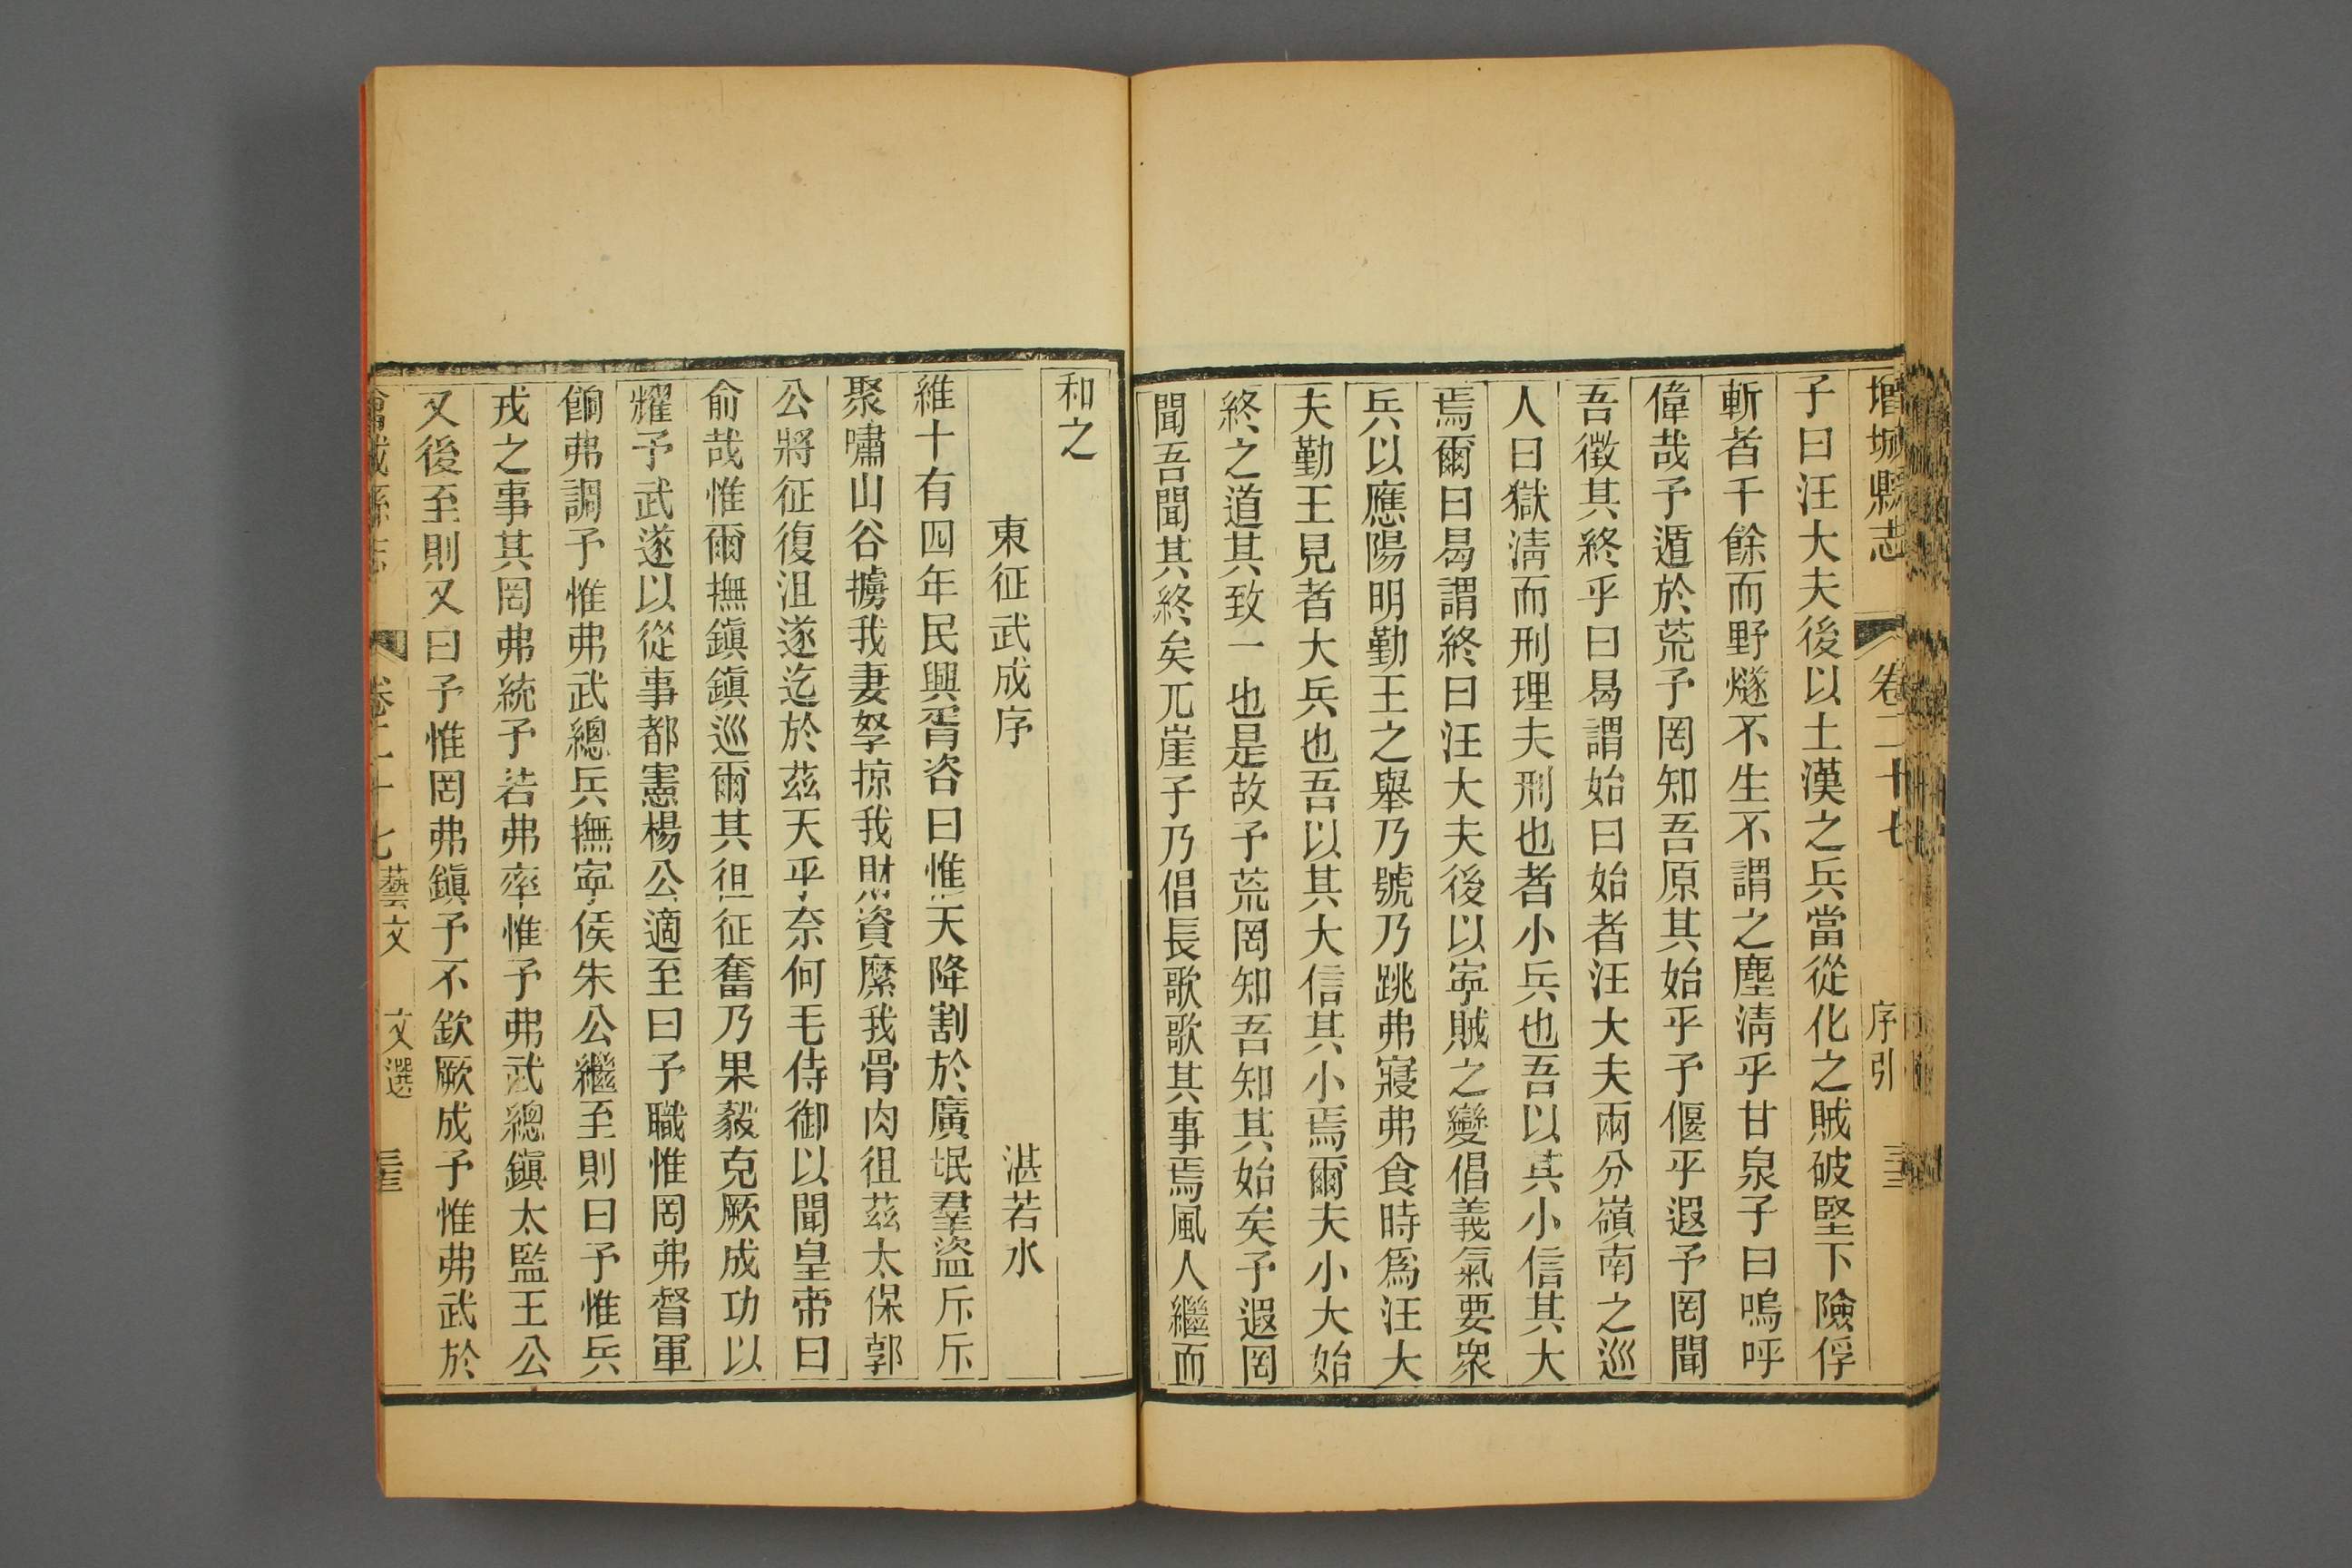 增城縣志 卷二十七 序引 三三
子曰汪大夫後以土漢之兵當從化之賊破堅下險俘
斬者千餘而野燧不生不謂之塵淸乎甘泉子曰嗚呼
偉哉予遁於荒予罔知吾原其始乎予偃乎遐予罔聞
吾徵其終乎曰曷謂始曰始者汪大夫兩分嶺南之巡
人曰獄淸而刑理夫刑也者小兵也吾以其小信其大
焉爾曰曷謂終曰汪大夫後以寧賊之變倡義氣要衆
兵以應陽明勤王之舉乃號乃跳弗寢弗食時爲汪大
夫勤王見者大兵也吾以其大信其小焉爾夫小大始
終之道其致一也是故予荒罔知吾知其始矣予遐罔
聞吾聞其終矣兀崖子乃倡長歌歌其事焉風人繼而
和之
東征武成序 湛若水
維十有四年民興胥咨曰惟天降割於廣垊羣盜斥斥
聚嘯山谷擄我妻孥掠我財資糜我骨肉徂茲太保郭
公將征復沮遂迄於茲天乎奈何毛侍御以聞皇帝曰
俞哉惟爾撫鎭鎭巡爾其徂征奮乃果毅克厥成功以
耀予武遂以從事都憲楊公適至曰予職惟罔弗督軍
餉弗調予惟弗武總兵撫寧侯朱公繼至則曰予惟兵
戎之事其罔弗統予若弗率惟予弗武總鎭太監王公
又後至則又曰予惟罔弗鎭予不欽厥成予惟弗武於
卷二十七 藝文 文選